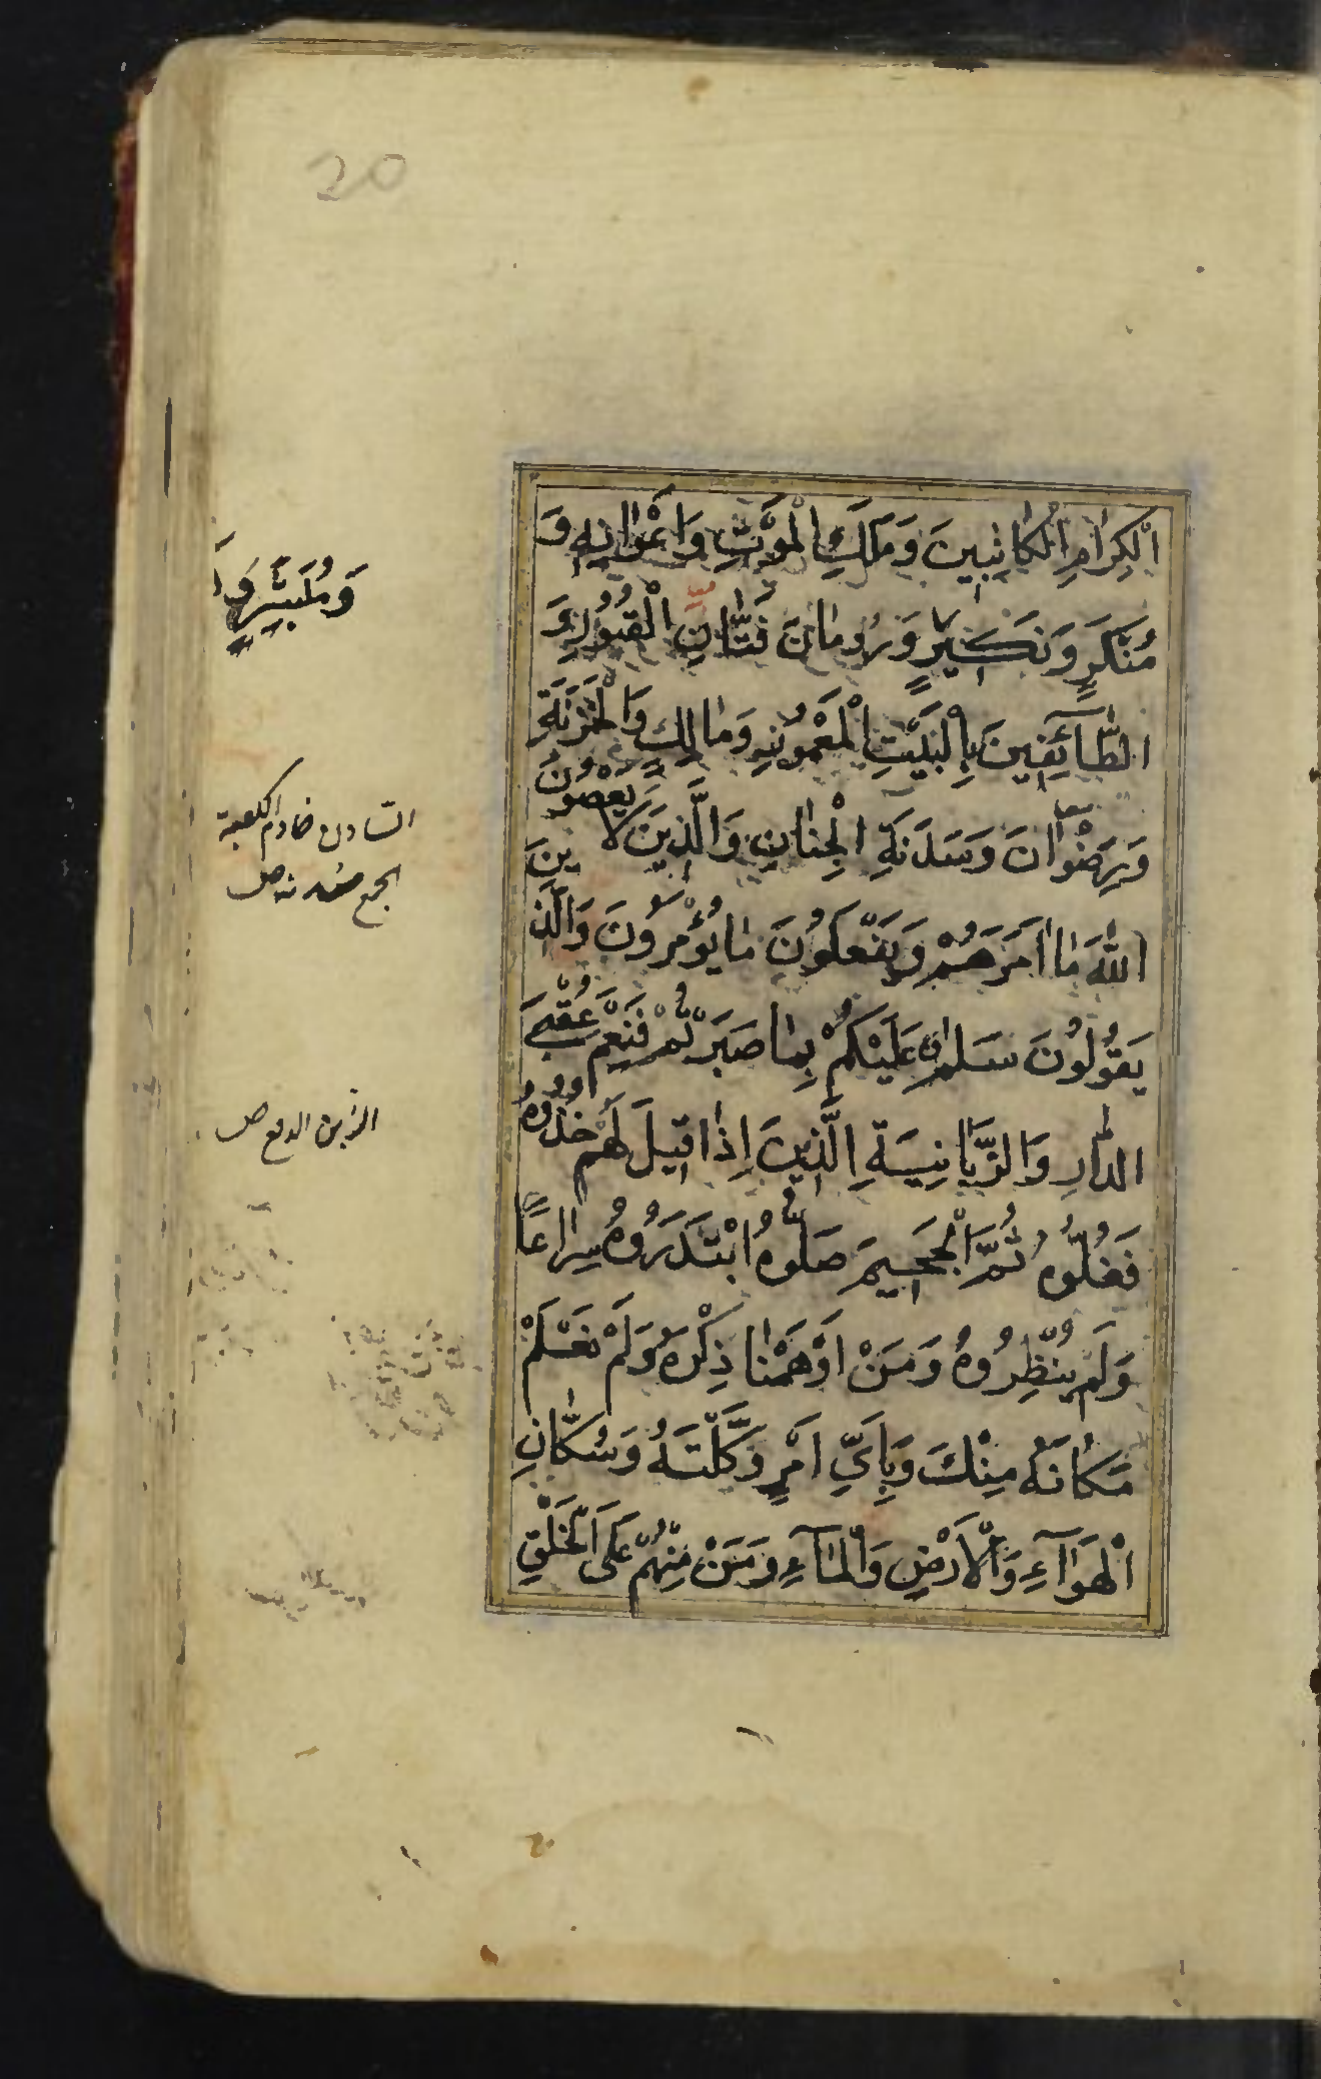 20
الْكِرَامِ الْكَاتِبِينَ وَمَلَكِ الْمَوْتِ وَاَعْوَانِهِ وَ
مُنْكَرٍ وَنَكِيرٍ وَرُومَانَ فَتَّانِ الْقُبُورِ وَ
الطَّآئِفِينَ بِالْبَيْتِ الْمَعْمُورِ وَمَالِكٍ وَالْخَزَنَةِ
وَرِضْوَانَ وَسَدَنَةِ الْجِنَانِ وَالَّذِينَ لَا يَعْصُونَ
اللّٰهَ مَا اَمَرَهُمْ وَيَفْعَلُونَ مَا يُؤْمَرُونَ وَالَّذِينَ
يَقُولُونَ سَلَامٌ عَلَيْكُمْ بِمَا صَبَرْتُمْ فَنِعْمَ عُقْبَى
الدَّارِ وَالزَّبَانِيَةِ الَّذِينَ اِذَا قِيلَ لَهُمْ خُذُوهُ
فَغُلُّوهُ ثُمَّ الْجَحِيمَ صَلُّوهُ ابْتَدَرُوهُ سِرَاعًا
وَلَمْ يُنْظِرُوهُ وَمَنْ اَوْهَمْنَا ذِكْرَهُ وَلَمْ نَعْلَمْ
مَكَانَهُ مِنْكَ وَبِاَيِّ اَمْرٍ وَكَّلْتَهُ وَسُكَّانِ
الْهَوَآءِ وَالْاَرْضِ وَالْمَآءِ وَمَنْ مِنْهُمْ عَلَى الْخَلْقِ
وَمُبَشِّرٍ وَ
السادن خادم الكعبة
الجمع سدنه ص
الزبن الدفع ص